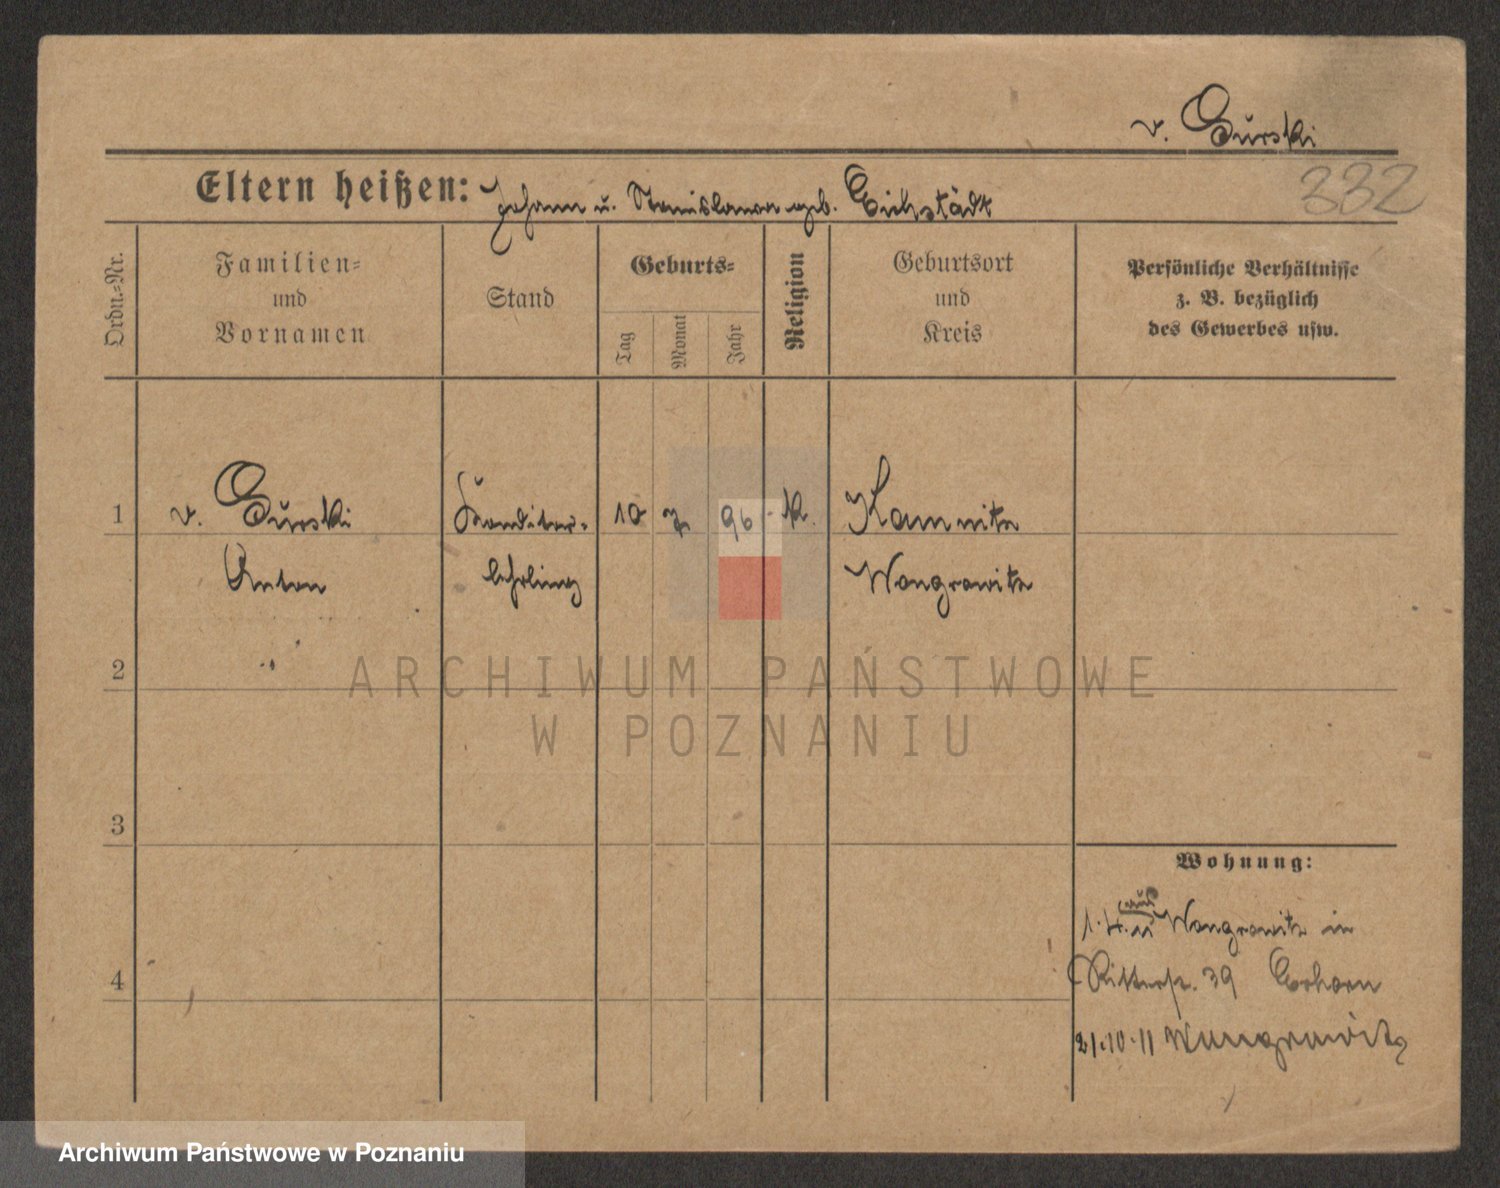 v. Gurski
Eltern heißen: Johann u. Stanislawa geb. Eichstädt
332
Ordn.=Nr.
Familien=
und
Vornamen
Stand
Geburts=
Tag
Monat
Jahr
Religion
Geburtsort
und
Kreis
Persönliche Verhältnisse
z. B. bezüglich
des Gewerbes usw.
1
v. Gurski
Anton
Konditor-
lehrling
10
7
96
k.
Kamnitz
Wongrowitz
2
3
4
Wohnung:
1.4.11 aus Wongrowitz in
Ritterst. 39
21.10.11 Wongrowitz
ARCHIWUM PAŃSTWOWE
W POZNANIU
Archiwum Państwowe w Poznaniu